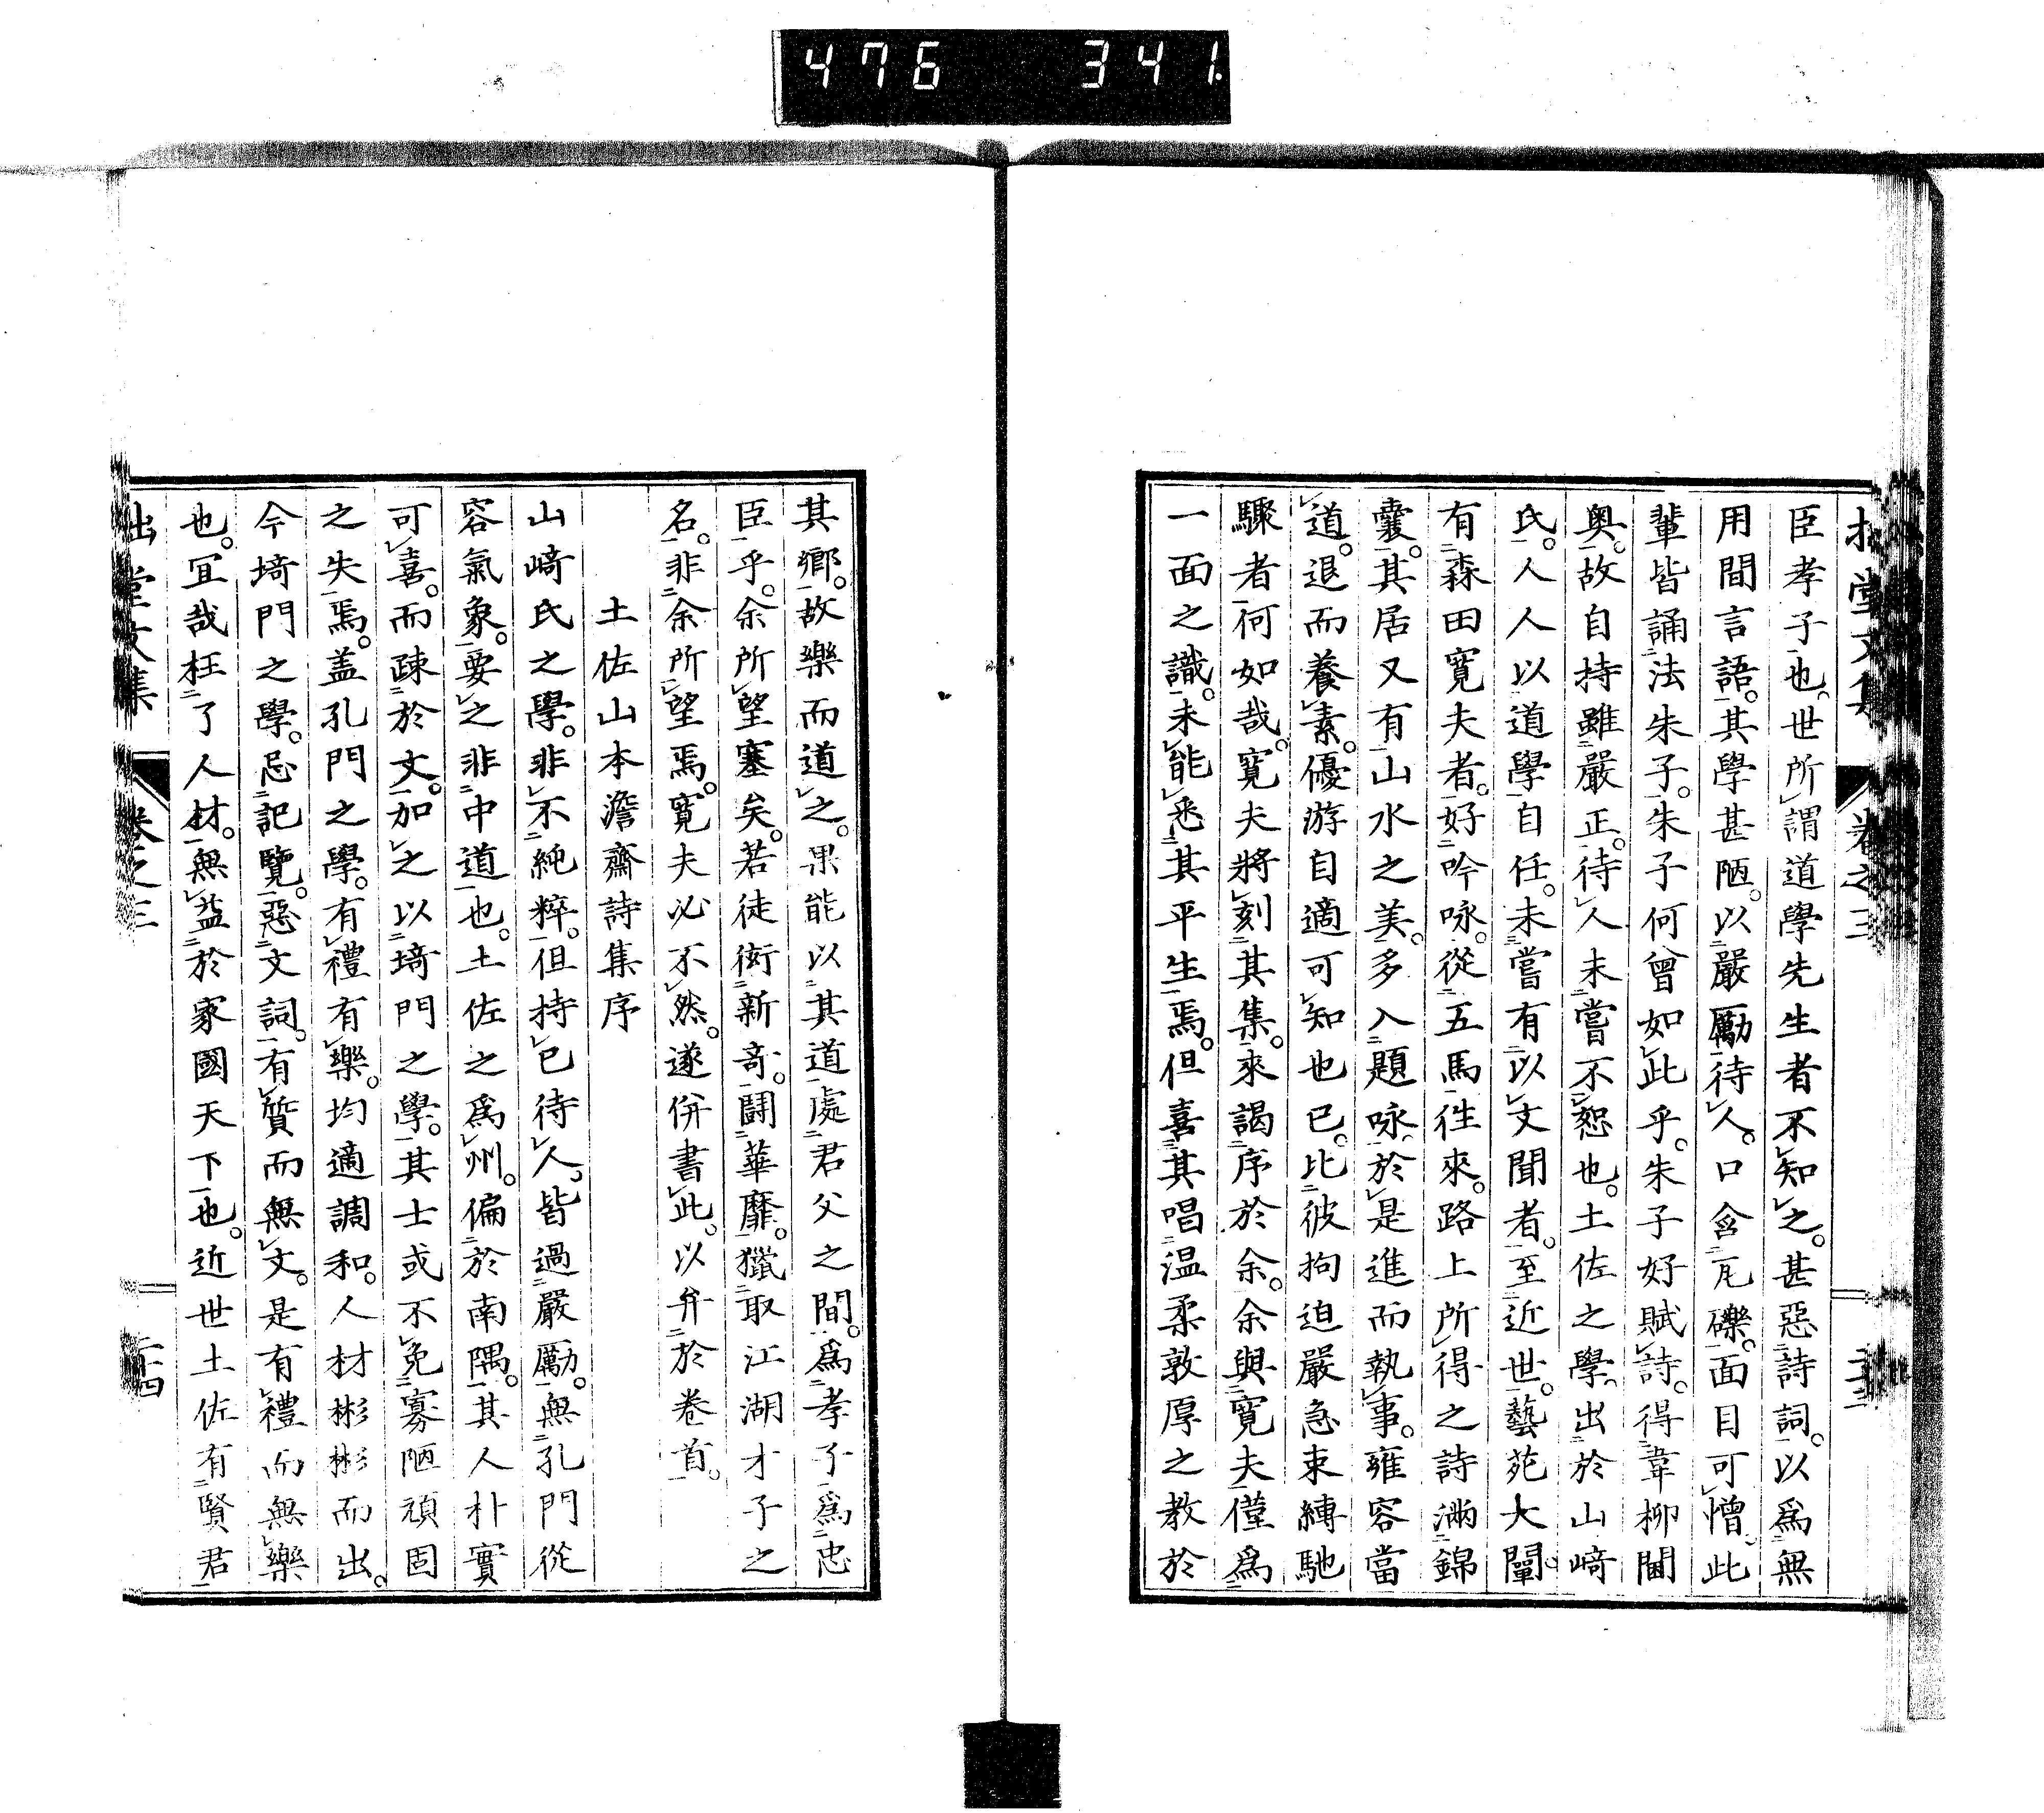 476 341.
臣孝子也。世所謂道學先生者不知之。甚惡詩詞。以爲無
用間言語。其學甚陋。以嚴厲待人。口含瓦礫。面目可憎。此
輩皆誦法朱子。朱子何曾如此乎。朱子好賦詩。得韋柳閫
奥。故自持雖嚴正。待人未嘗不恕也。土佐之學。出於山﨑
氏。人人以道學自任。未嘗有以文聞者。至近世。藝苑大闡。
有森田寛夫者。好吟咏。從五馬徃來。路上所得之詩滿錦
囊。其居又有山水之美。多入題咏。於是進而執事。雍容當
道。退而養素。優游自適可知也已。比彼拘迫嚴急束縛馳
驟者何如哉。寛夫將刻其集。來謁序於余。余與寛夫僅爲
一面之識。未能悉其平生焉。但喜其唱温柔敦厚之教於
其鄉。故樂而道之。果能以其道處君父之間。爲孝子爲忠
臣乎。余所望塞矣。若徒衒新奇。鬪華靡。獵取江湖才子之
名。非余所望焉。寛夫必不然。遂併書此。以弁於卷首。
土佐山本澹齋詩集序
山﨑氏之學。非不純粹。但持已待人。皆過嚴厲。無孔門從
容氣象。要之非中道也。土佐之爲州。偏於南隅。其人朴實
可喜。而疎於文。加之以﨑門之學。其士或不免寡陋頑固
之失焉。盖孔門之學。有禮有樂。均適調和。人材彬彬而出。
今﨑門之學。忌記覽。惡文詞。有質而無文。是有禮而無樂
也。冝哉枉了人材。無益於家國天下也。近世土佐有賢君
堂文集 卷之三